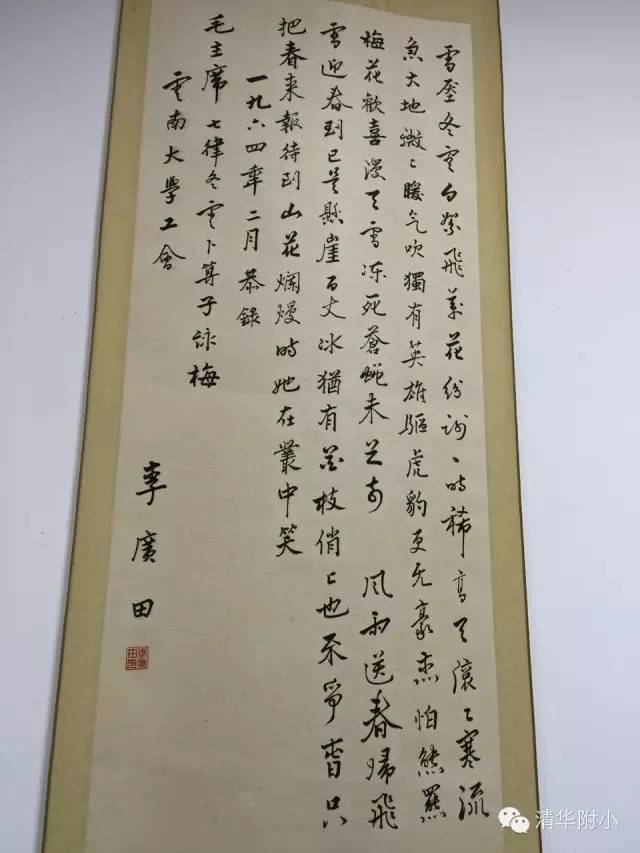 雪壓冬雲白絮飛萬花紛謝一時稀高天滾〻寒流
急大地微〻暖气吹獨有英雄驅虎豹更无豪杰怕熊羆
梅花歡喜漫天雪凍死蒼蠅未足奇 風雨送春歸飛
雪迎春到已是懸崖百丈冰猶有花枝俏〻也不爭春只
把春来報待到山花爛熳時她在叢中笑
一九六四年二月恭錄
毛主席七律冬雲卜算子詠梅
雲南大學工會
李廣田
清华附小